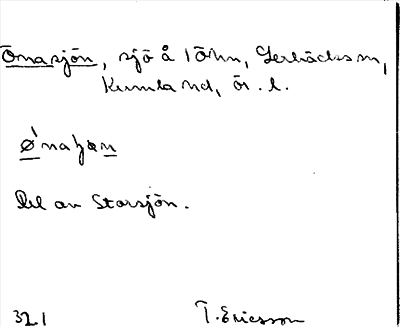 Önasjön, sjö å 1 Öhn, Lerbäcks sn,
Kumla hd, ör. l.
ø'naʃɷn
Del av Storsjön.
321 T. Ericsson